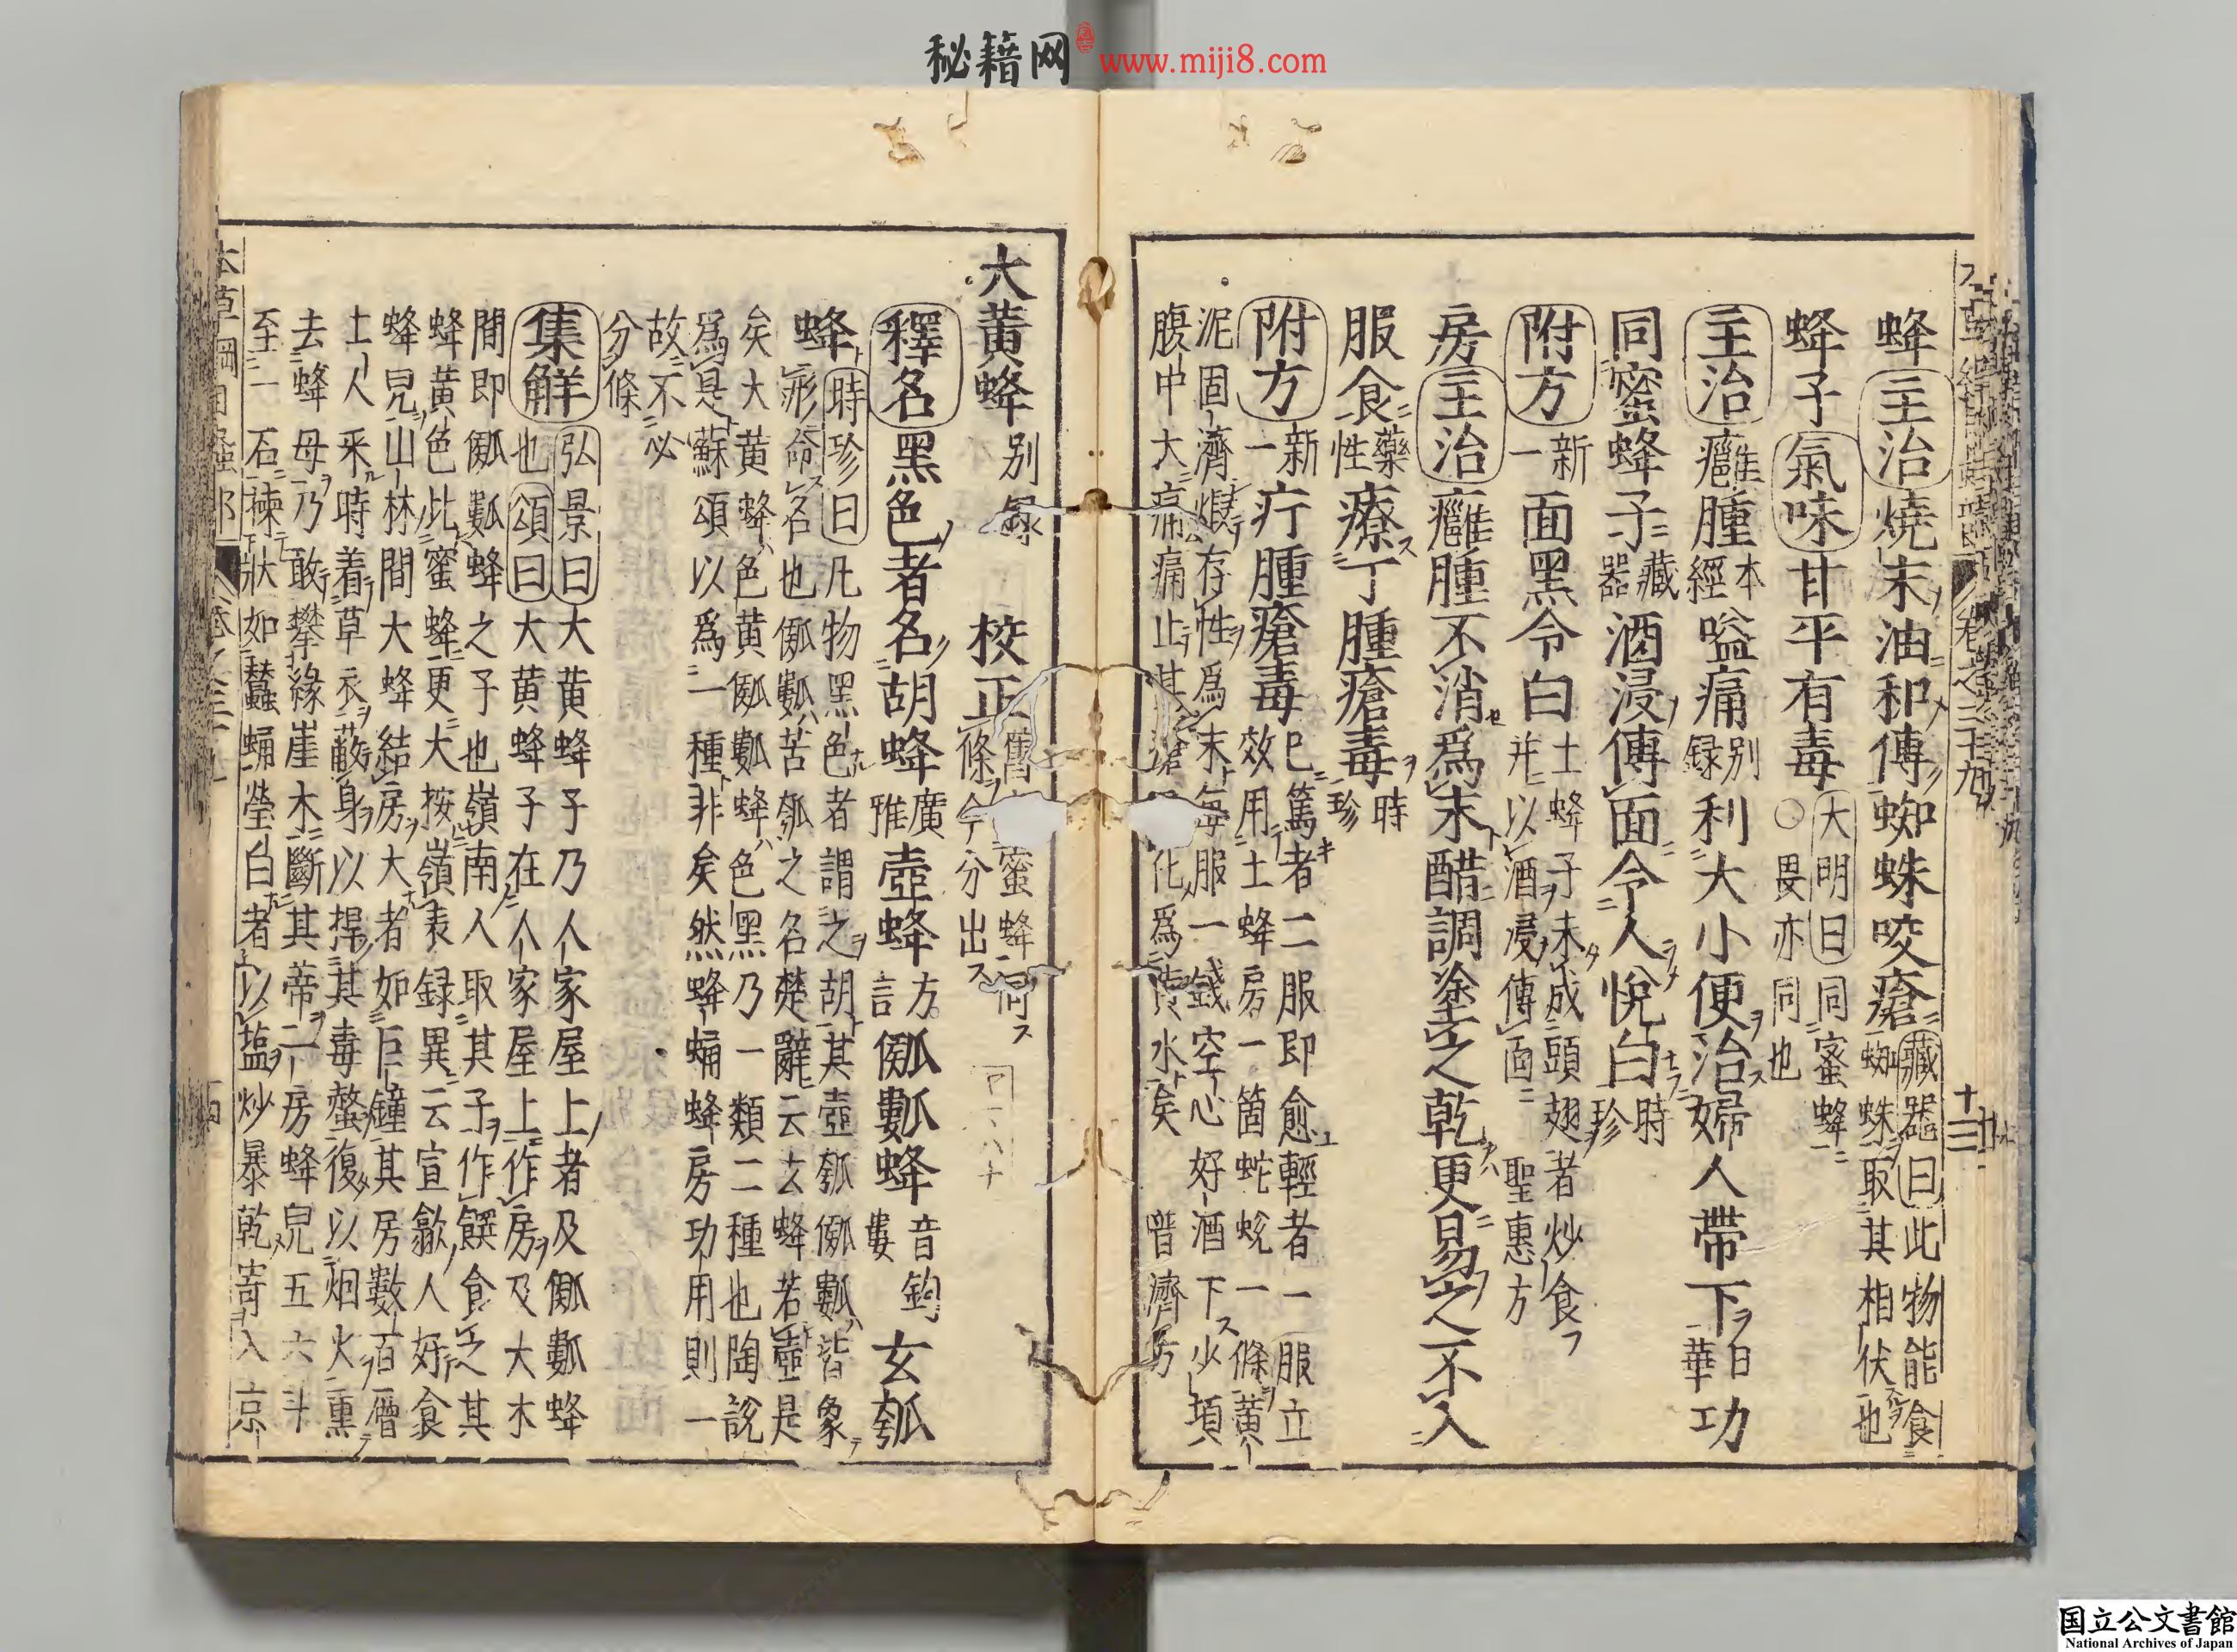 秘籍网 www.miji8.com
蜂主治燒末油和傅蜘蛛咬瘡藏器曰此物能食
蜘蛛取其相伏也
蜂子氣味甘平有毒大明曰同蜜蜂
○畏亦同也
主治癰腫本經嗌痛别録利大小便治婦人帶下日華功
同蜜蜂子藏器酒浸傅面令人悅白時珍
附方新一面黑令白土蜂子未成頭翅者炒食
并以酒浸傅面 聖惠方
房主治癰腫不消爲末醋調塗之乾更易之不入
服食藥性療丁腫瘡毒時珍
附方新一疔腫瘡毒已篤者二服即愈輕者一服立
效用土蜂房一箇蛇蛻一條黄
泥固濟煅存性爲末每服一錢空心好酒下少頃
腹中大痛痛止其瘡化爲黄水矣 普濟方
大黄蜂别録 校正舊 蜜蜂
條今分出
釋名黑色者名胡蜂廣雅壺蜂方言𤫫𤬛蜂音鉤婁玄瓠
蜂時珍曰凡物黑色者謂之胡其壺瓠𤫫𤬛皆象
形命名也𤫫𤬛苦瓠之名楚辭云玄蜂若壺是
矣大黄蜂色黄𤫫𤬛蜂色黑乃一類二種也陶說
爲是蘇頌以爲一種非矣然蜂蛹蜂房功用則一
故不必
分條
集解弘景曰大黄蜂子乃人家屋上者及𤫫𤬛蜂
也頌曰大黄蜂子在人家屋上作房及大木
間即𤫫𤬛蜂之子也嶺南人取其子作饌食之其
蜂黄色比蜜蜂更大按嶺表録異云宣歙人好食
蜂兒山林間大蜂結房大者如巨鐘其房數百層
土人采時着草衣蔽身以捍其毒螫復以烟火熏
去蜂母乃敢攀緣崖木斷其蒂一房蜂兒五六斗
至一石揀狀如蠶蛹瑩白者以塩炒暴乾寄入京
国立公文書館
National Archives of Japan